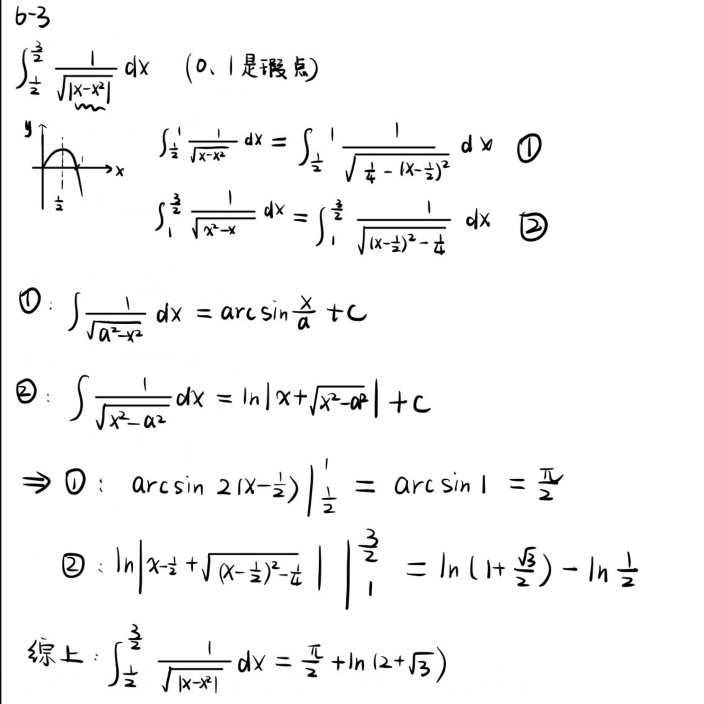 6-3
∫_{1/2}^{3/2} 1/√|x-x²| dx (0、1是瑕点)
y x 1/2 1
∫_{1/2}^{1} 1/√(x-x²) dx = ∫_{1/2}^{1} 1/√(1/4-(x-1/2)²) dx ①
∫_{1}^{3/2} 1/√(x²-x) dx = ∫_{1}^{3/2} 1/√((x-1/2)²-1/4) dx ②
①: ∫ 1/√(a²-x²) dx = arcsin x/a + C
②: ∫ 1/√(x²-a²) dx = ln|x+√(x²-a²)| + C
⇒ ①: arcsin 2(x-1/2) |_{1/2}^{1} = arcsin 1 = π/2
②: ln|x-1/2+√((x-1/2)²-1/4)| |_{1}^{3/2} = ln(1+√3/2) - ln 1/2
综上: ∫_{1/2}^{3/2} 1/√|x-x²| dx = π/2 + ln(2+√3)